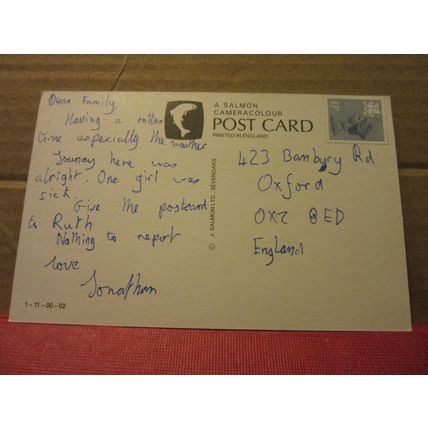 Dear Family,
Having a rotten
time especially the weather
Journey here was
alright. One girl was
sick.
Give the postcard
to Ruth
Nothing to report
love
Jonathan
1-11-00-02
A SALMON
CAMERACOLOUR
POST CARD
PRINTED IN ENGLAND
© J. SALMON LTD., SEVENOAKS
17P
423 Banbury Rd
Oxford
OX2 8ED
England